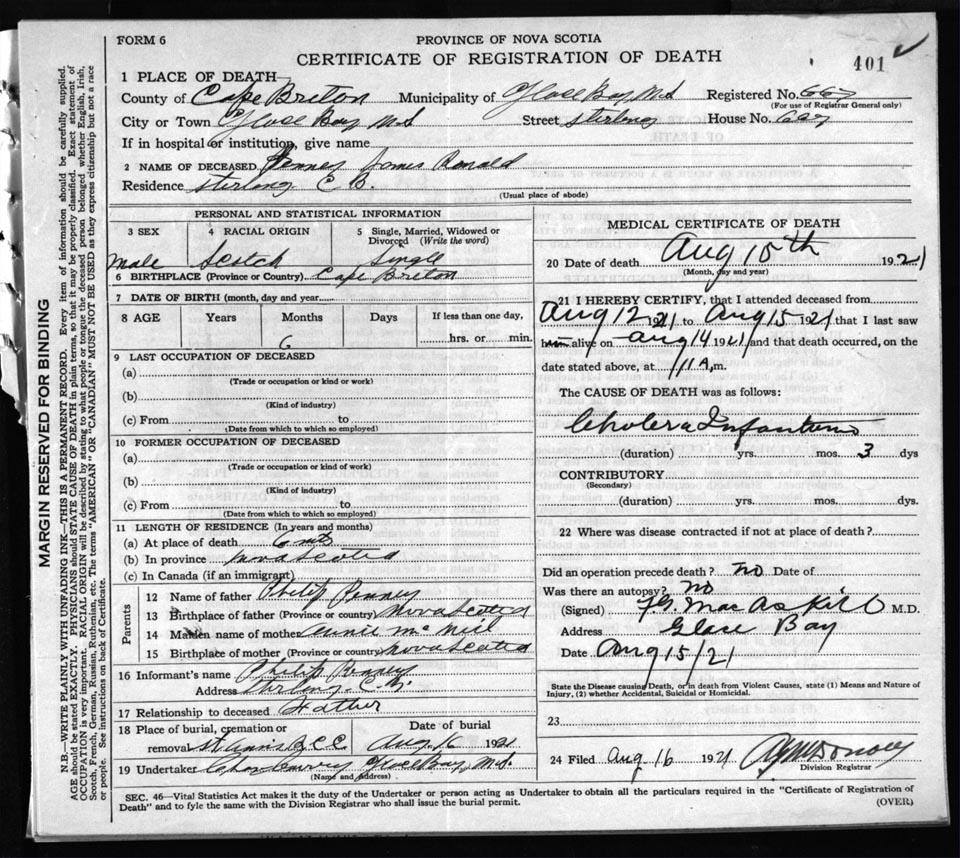 FORM 6
PROVINCE OF NOVA SCOTIA
CERTIFICATE OF REGISTRATION OF DEATH
401
1 PLACE OF DEATH
County of Cape Breton Municipality of Glace Bay N.S Registered No. 667
(For use of Registrar General only)
City or Town Glace Bay N.S Street Sterling House No.
If in hospital or institution, give name
2 NAME OF DECEASED Penney James Ronald
Residence Sterling C B.
(Usual place of abode)
PERSONAL AND STATISTICAL INFORMATION
3 SEX 4 RACIAL ORIGIN 5 Single, Married, Widowed or Divorced (Write the word)
male Scotch Single
6 BIRTHPLACE (Province or Country) Cape Breton
7 DATE OF BIRTH (month, day and year)
8 AGE Years Months Days If less than one day,
6 hrs. or min.
9 LAST OCCUPATION OF DECEASED
(a)
(Trade or occupation or kind or work)
(b)
(Kind of industry)
(c) From to
(Date from which to which so employed)
10 FORMER OCCUPATION OF DECEASED
(a)
(Trade or occupation or kind of work)
(b)
(Kind of industry)
(c) From to
(Date from which to which so employed)
11 LENGTH OF RESIDENCE (In years and months)
(a) At place of death 6 mts
(b) In province Nova Scotia
(c) In Canada (if an immigrant)
Parents
12 Name of father Philip Penney
13 Birthplace of father (Province or country) Nova Scotia
14 Maiden name of mother Annie McNeil
15 Birthplace of mother (Province or country) Nova Scotia
16 Informant's name Philip Penney
Address Sterling C. B.
17 Relationship to deceased Father
18 Place of burial, cremation or removal St Anns R.C.C. Date of burial Aug. 16 1921
19 Undertaker Chas Curry Glace Bay, N.S.
(Name and Address)
MEDICAL CERTIFICATE OF DEATH
20 Date of death Aug 15th 1921
(Month, day and year)
21 I HEREBY CERTIFY, that I attended deceased from
Aug 12 1921 to Aug 15 1921 that I last saw
him alive on Aug 14 1921 and that death occurred, on the
date stated above, at 11 A.m.
The CAUSE OF DEATH was as follows:
Cholera Infantum
(duration) yrs. mos. 3 dys
CONTRIBUTORY
(Secondary)
(duration) yrs. mos. dys.
22 Where was disease contracted if not at place of death?
Did an operation precede death? No Date of
Was there an autopsy? No
(Signed) MacAskill M.D.
Address Glace Bay
Date Aug 15/21
State the Disease causing Death, or in death from Violent Causes, state (1) Means and Nature of
Injury, (2) whether Accidental, Suicidal or Homicidal.
23
24 Filed Aug 16 1921
Division Registrar
SEC. 46—Vital Statistics Act makes it the duty of the Undertaker or person acting as Undertaker to obtain all the particulars required in the "Certificate of Registration of
Death" and to fyle the same with the Division Registrar who shall issue the burial permit.
(OVER)
MARGIN RESERVED FOR BINDING
N.B.—WRITE PLAINLY WITH UNFADING INK—THIS IS A PERMANENT RECORD. Every item of information should be carefully supplied.
AGE should be stated EXACTLY. PHYSICIANS should STATE CAUSE OF DEATH in plain terms, so that it may be properly classified. Exact statement of
OCCUPATION is very important. RACIAL ORIGIN will be described by stating to what people or tongue the deceased person belonged whether English, Irish,
Scotch, French, German, Russian, Ruthenian, etc. The terms "AMERICAN" OR "CANADIAN" MUST NOT BE USED as they express citizenship but not a race
or people. See instructions on back of Certificate.